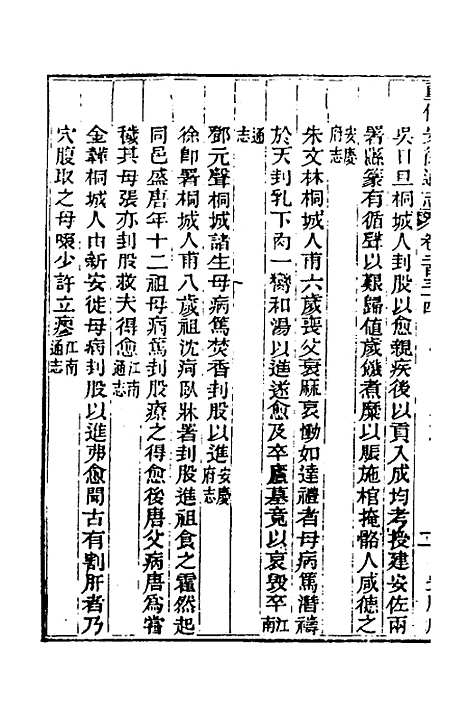 吳日旦桐城人刲股以愈親疾後以貢入成均考授建安佐兩
署縣篆有循聲以艱歸值歲饑煮糜以賑施棺掩骼人咸德之
安慶府志
朱文林桐城人甫六歲喪父衰麻哀慟如達禮者母病篤潛禱
於天刲乳下肉一臠和湯以進遂愈及卒廬墓竟以哀毀卒江南
通志
鄧元聲桐城諸生母病篤焚香刲股以進安慶府志
徐帥署桐城人甫八歲祖沈疴臥牀署刲股進祖食之霍然起
同邑盛唐年十二祖母病篤刲股療之得愈後唐父病唐爲嘗
穢其母張亦刲股救夫得愈江南通志
金蕣桐城人由新安徒母病刲股以進弗愈聞古有割肝者乃
穴腹取之母啜少許立瘳江南通志